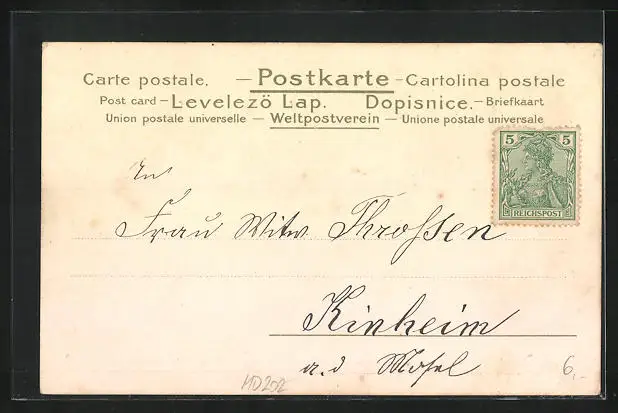 Carte postale. — Postkarte — Cartolina postale
Post card — Levelező Lap. Dopisnice. — Briefkaart
Union postale universelle — Weltpostverein — Unione postale universale
5 5
REICHSPOST
An
Frau Witw Throssen
Kinheim
a.d Mosel
MD202
6,-